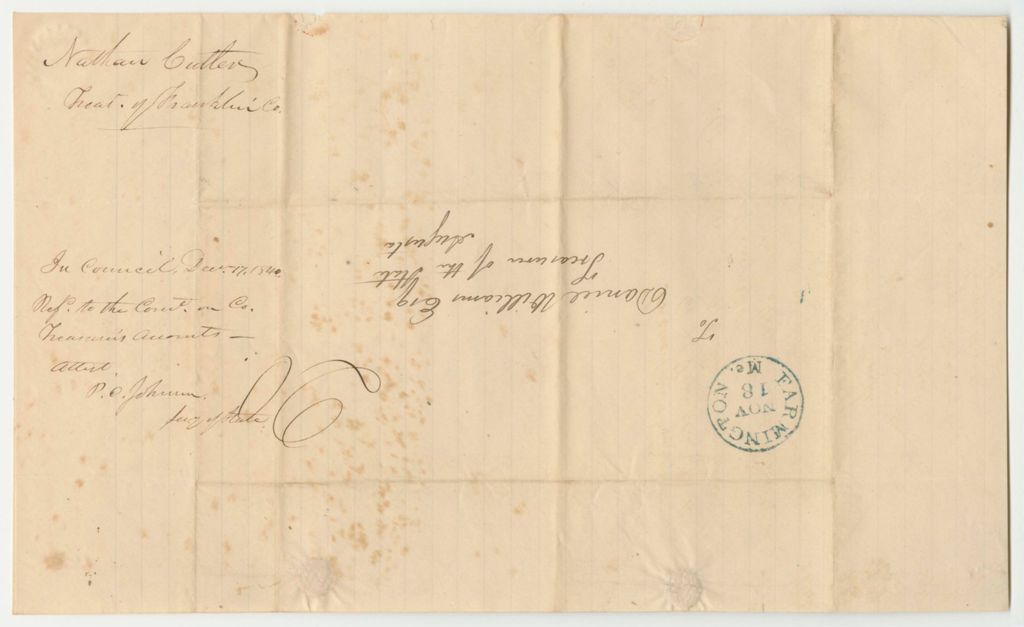 Nathan Cutler
Treas. of Franklin Co.
In Council, Dec. 17, 1840.
Ref. to the Comt. on Co.
Treasurer's Accounts —
Attest,
P. C. Johnson,
Secy of State.
To
Daniel Williams Esq
Treasurer of the State
Augusta
FARMINGTON
Me.
NOV
18